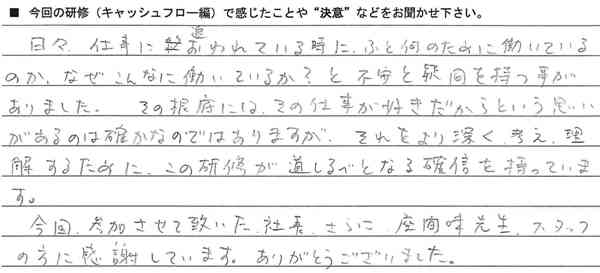 ■ 今回の研修（キャッシュフロー編）で感じたことや“決意”などをお聞かせ下さい。
日々、仕事に追われている時に、ふと何のために働いている
のか、なぜこんなに働いているか？と不安と疑問を持つ事が
ありました。 その根底には、その仕事が好きだからという思い
があるのは確かなのではありますが、それをより深く、考え、理
解するために、この研修が道しるべとなる確信を持っていま
す。
今回、参加させて致いた、社長、さらに、座間味先生、スタッフ
の方に感謝しています。ありがとうございました。